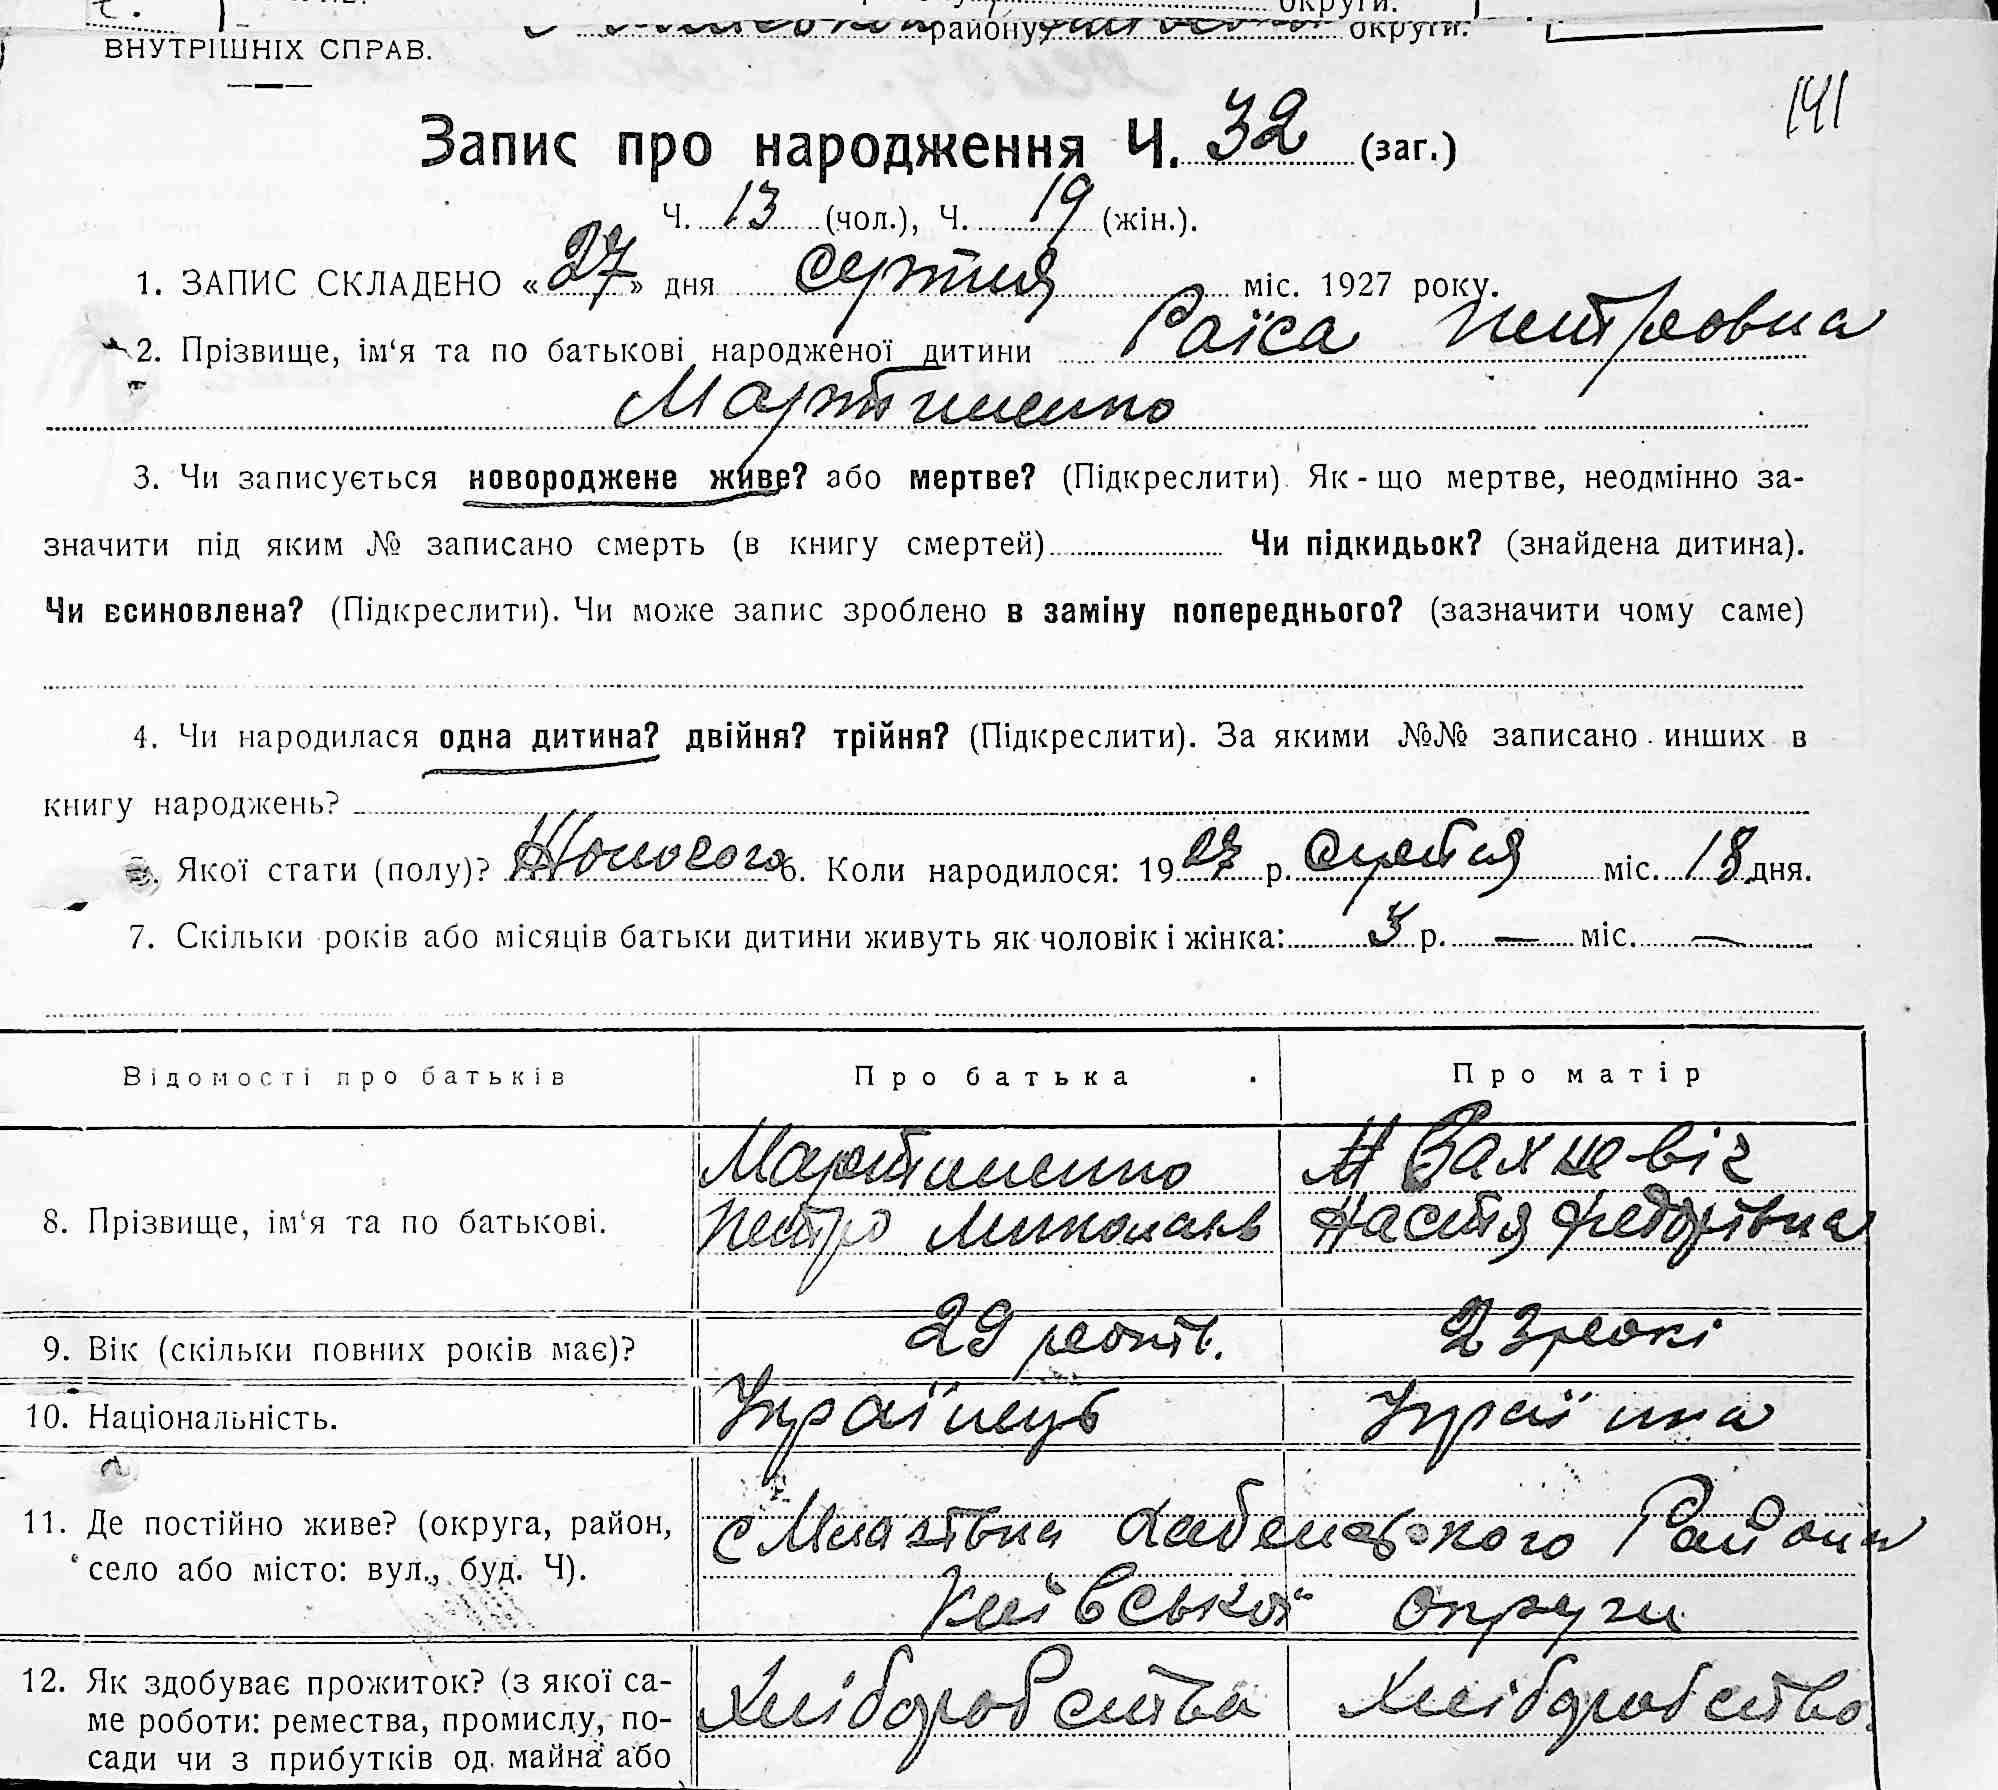 округи.
району округи.
ВНУТРІШНІХ СПРАВ.
141
Запис про народження Ч. 32 (заг.)
Ч. 13 (чол.), Ч. 19 (жін.).
1. ЗАПИС СКЛАДЕНО «27» дня серпня міс. 1927 року.
2. Прізвище, ім‘я та по батькові народженої дитини Раїса Петровна
Мартиненко
3. Чи записується новороджене живе? або мертве? (Підкреслити) Як-що мертве, неодмінно за-
значити під яким № записано смерть (в книгу смертей) Чи підкидьок? (знайдена дитина).
Чи всиновлена? (Підкреслити). Чи може запис зроблено в заміну попереднього? (зазначити чому саме)
4. Чи народилася одна дитина? двійня? трійня? (Підкреслити). За якими №№ записано инших в
книгу народжень?
5. Якої стати (полу)? Жоночого 6. Коли народилося: 1927 р. серпня міс. 18 дня.
7. Скільки років або місяців батьки дитини живуть як чоловік і жінка: 3 р. — міс. —
Відомості про батьків Про батька Про матір
Мартиненко Вахневіч
8. Прізвище, ім‘я та по батькові. Петро Миколаїв Настя Федорівна
9. Вік (скільки повних років має)? 29 років. 23 рокі
10. Національність. Українець Українка
11. Де постійно живе? (округа, район, с Млачівка Хабенського Района
село або місто: вул., буд. Ч). Київської округи
12. Як здобуває прожиток? (з якої са- Хліборобства Хліборобство
ме роботи: ремества, промислу, по-
сади чи з прибутків од. майна або